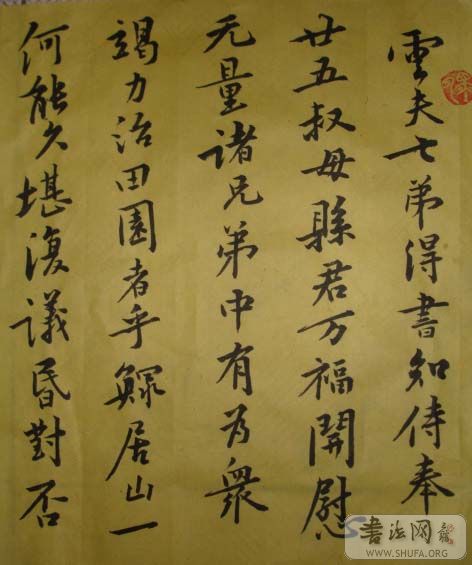 雲夫七弟得書知侍奉
廿五叔母縣君万福開慰
无量諸兄弟中有為衆
竭力治田園者乎鰥居山一
何能久堪復議昏對否
書法网
WWW.SHUFA.ORG